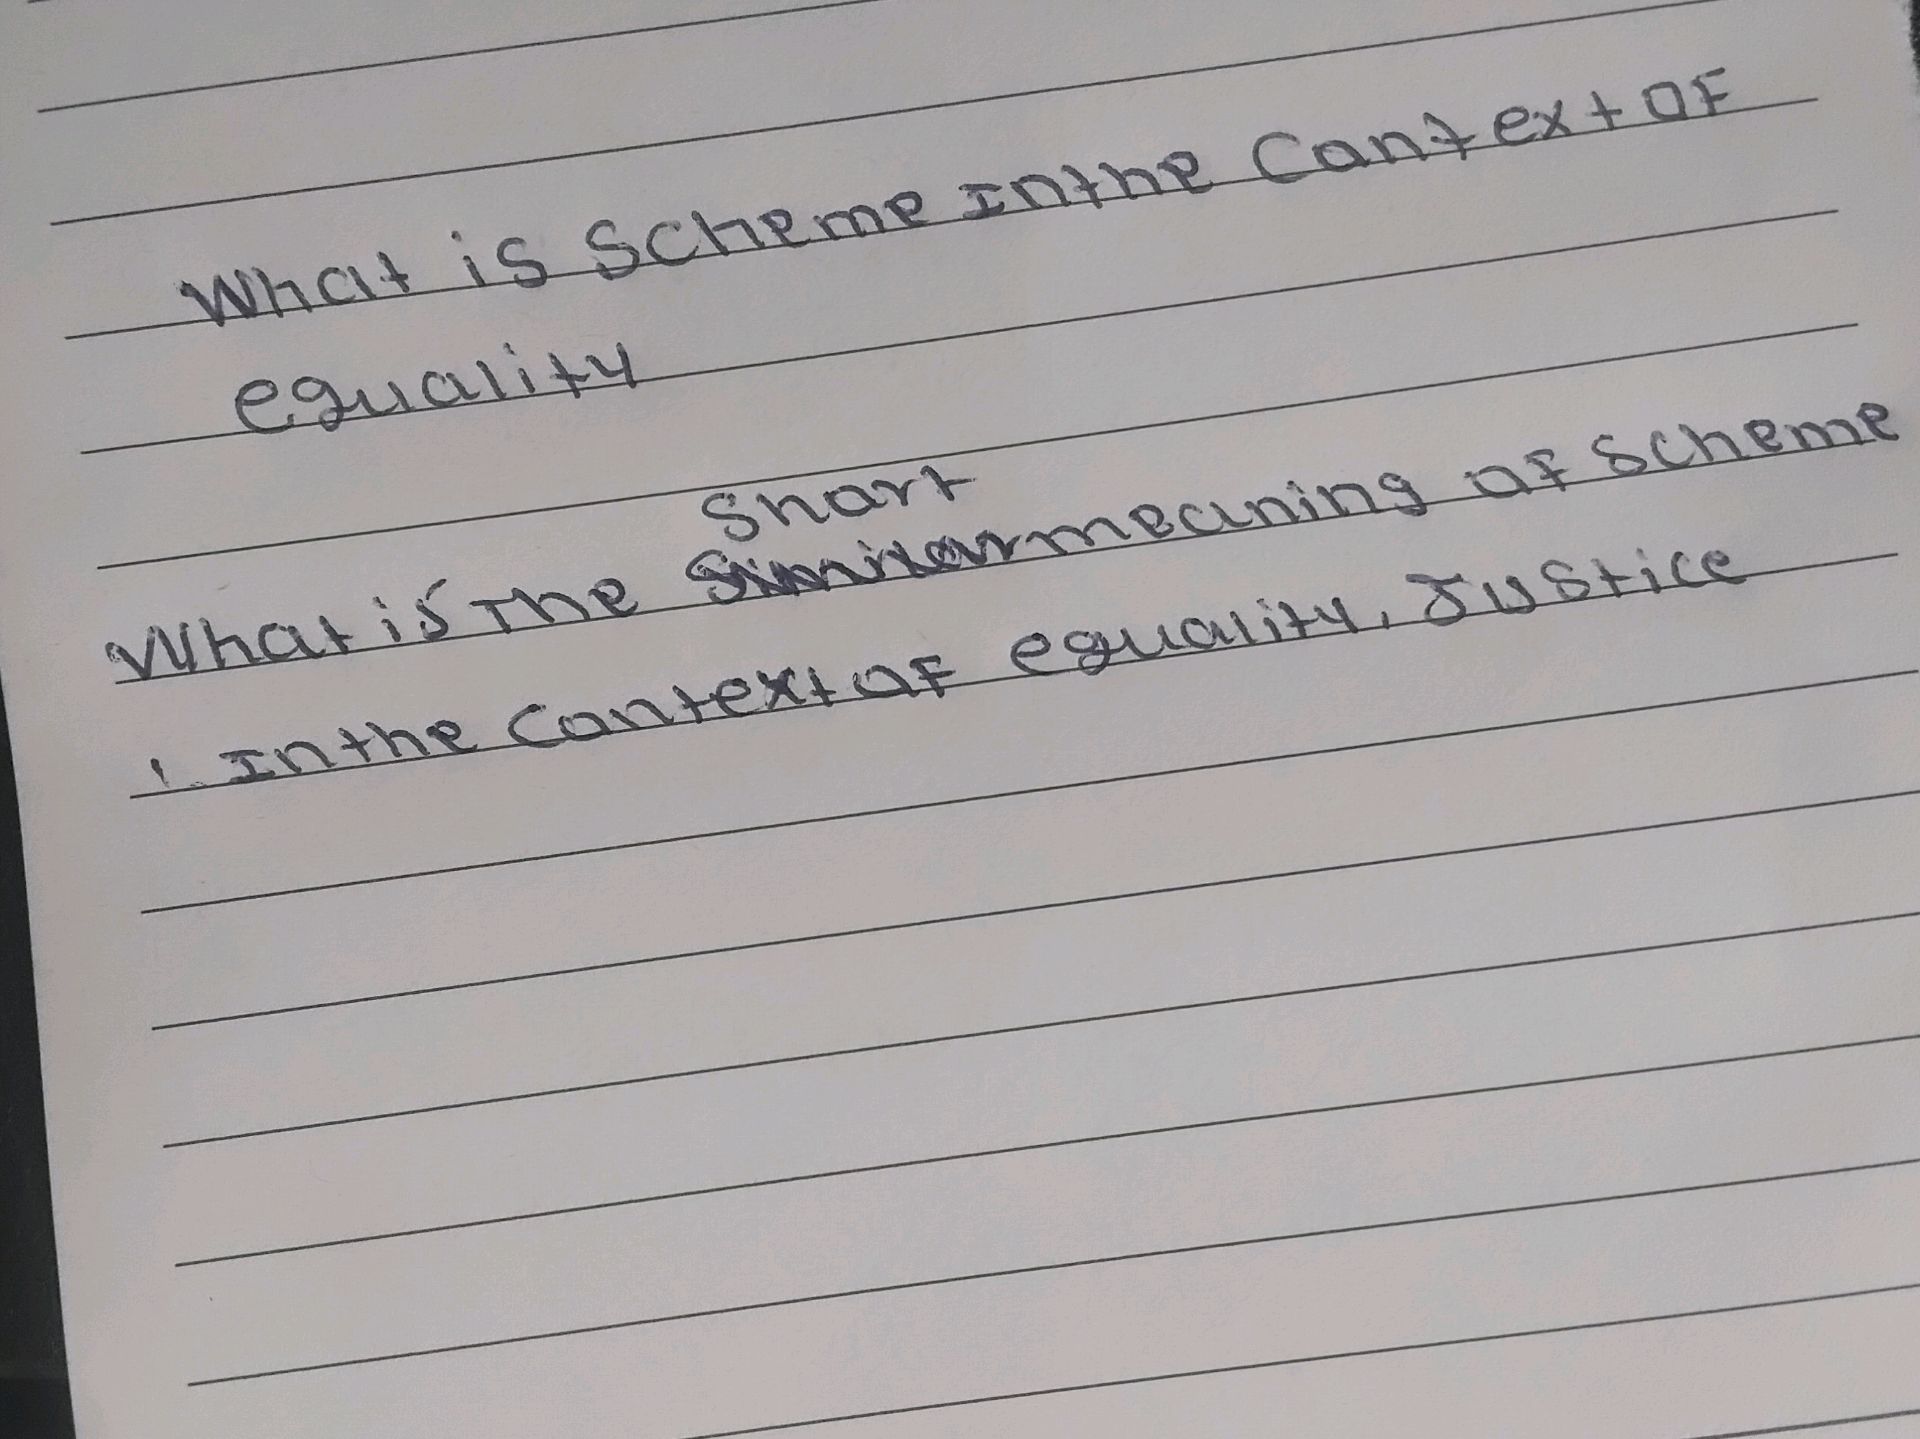 What is Scheme In the Context OF
equality
Short
What is The meaning of Scheme
In the Context of equality, Justice